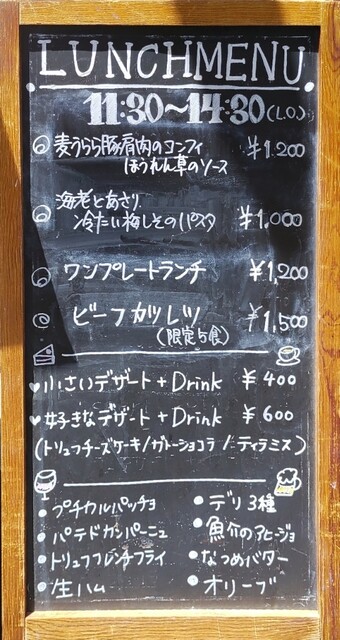 LUNCHMENU
11:30~14:30(L.O.)
麦うらら豚肩肉のコンフィ ¥1,200
ほうれん草のソース
海老とあさり
冷たい梅しそのパスタ ¥1,000
ワンプレートランチ ¥1,200
ビーフカツレツ ¥1,500
(限定5食)
♥小さいデザート + Drink ¥400
♥好きなデザート + Drink ¥600
(トリュフチーズケーキ/ガトーショコラ/ティラミス)
•プチカルパッチョ •デリ3種
•パテドカンパーニュ •魚介のアヒージョ
•トリュフフレンチフライ •なつめバター
•生ハム •オリーブ